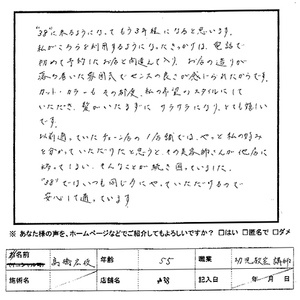 "38"に来るようになってもう3年程になると思います。
私がこちらを利用するようになったきっかけは、電話で
初めて予約したお店と間違えて入り、お店の造りが
落ち着いた雰囲気でセンスの良さが感じられたからです。
カット・カラーもその都度、私の希望のスタイルにして
いただき、髪がいたまずにサラサラになり、とても嬉しい
です。
以前通っていたチェーン店の1店舗では、やっと私の好み
を分かっていただけたと思うと、その美容師さんが他店に
移ってしまい、そんなことが続き困っていました。
"38"ではいつも同じ方にやっていただけるので
安心して通っています
※ あなた様の声を、ホームページなどでご紹介してもよろしいですか? □はい □匿名で □ダメ
お名前 年齢 55 職業 幼児教室 講師
施術名 店舗名 記入日 年 月 日